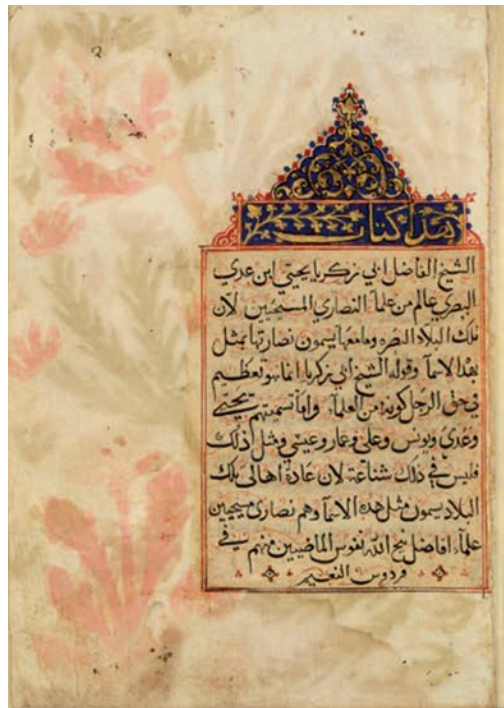 هذا كتاب
الشيخ الفاضل ابي زكريا يحيي ابن عدي
البصري عالم من علماء النصاري المسيحيين لان
تلك البلاد البصره ومامعها يسمون نصارتها بمثل
هذا الاسمآ وقوله الشيخ أبي زكريا انما هو تعظيم
في حق الرجل كونه من العلمآء واما تسميتهم يحيي
وعدي ويونس وعلي وعمار وعيسي ومثل اذلك
فليس في ذلك شناعة لان عادة اهالي تلك
البلاد يسمون مثل هده الاسمآ وهم نصاري مسيحيين
علمآء افاضل نيح الله نفوس الماضيين منهم في
فردوس النعيم